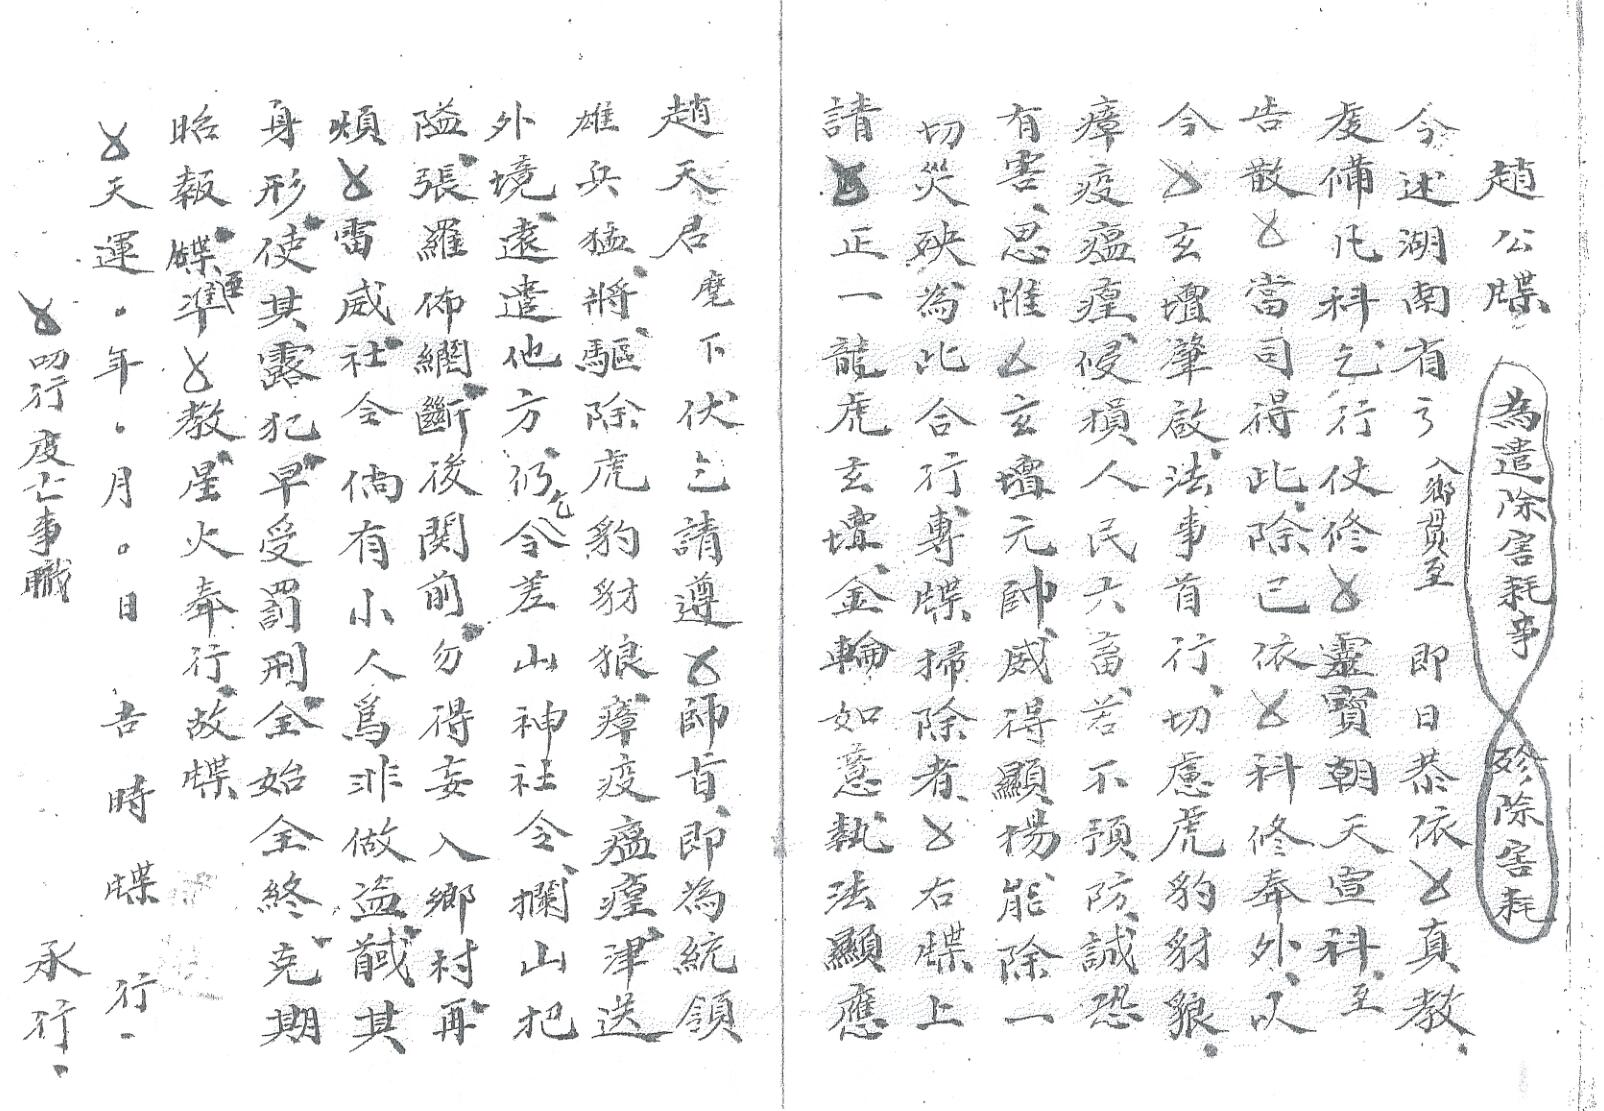 趙公牒 為遣除害耗事 殄除害耗
今述湖南有 入鄉貫至 即日恭依 真教
度備凡科乞行仗修 靈寶朝天宣科至
告散 當司得此除已依 科修奉外以
今 玄壇肇啟法事首行切慮虎豹豺狼
瘴疫瘟㾮侵損人民六畜若不預防誠恐
有害思惟 玄壇元帥威得顯揚能除一
切災殃為此合行專牒掃除者 右牒上
請 正一龍虎玄壇金輪如意執法顯應
趙天君麾下伏乞請遵 師旨即為統領
雄兵猛將驅除虎豹豺狼瘴疫瘟㾮津送
外境遠遣他方仍乞令差山神社令攔山把
隘張羅佈網斷後関前勿得妄入鄉村再
煩 雷威社令倘有小人為非做盜馘其
身形使其露犯早受罰刑全始全終克期
昭報牒準 教星火奉行故牒
天運 年 月 日 吉時牒行
叨行度亡事職 承行